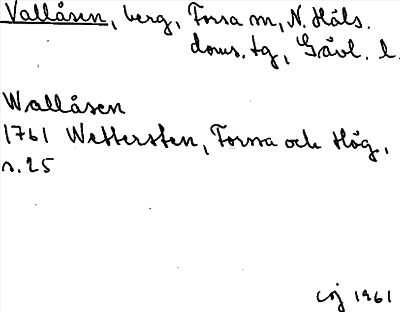 Vallåsen, berg, Forsa sn, N. Häls.
doms. tg, Gävl. l.
Wallåsen
1761 Wettersten, Forssa och Hög,
s. 25
1961